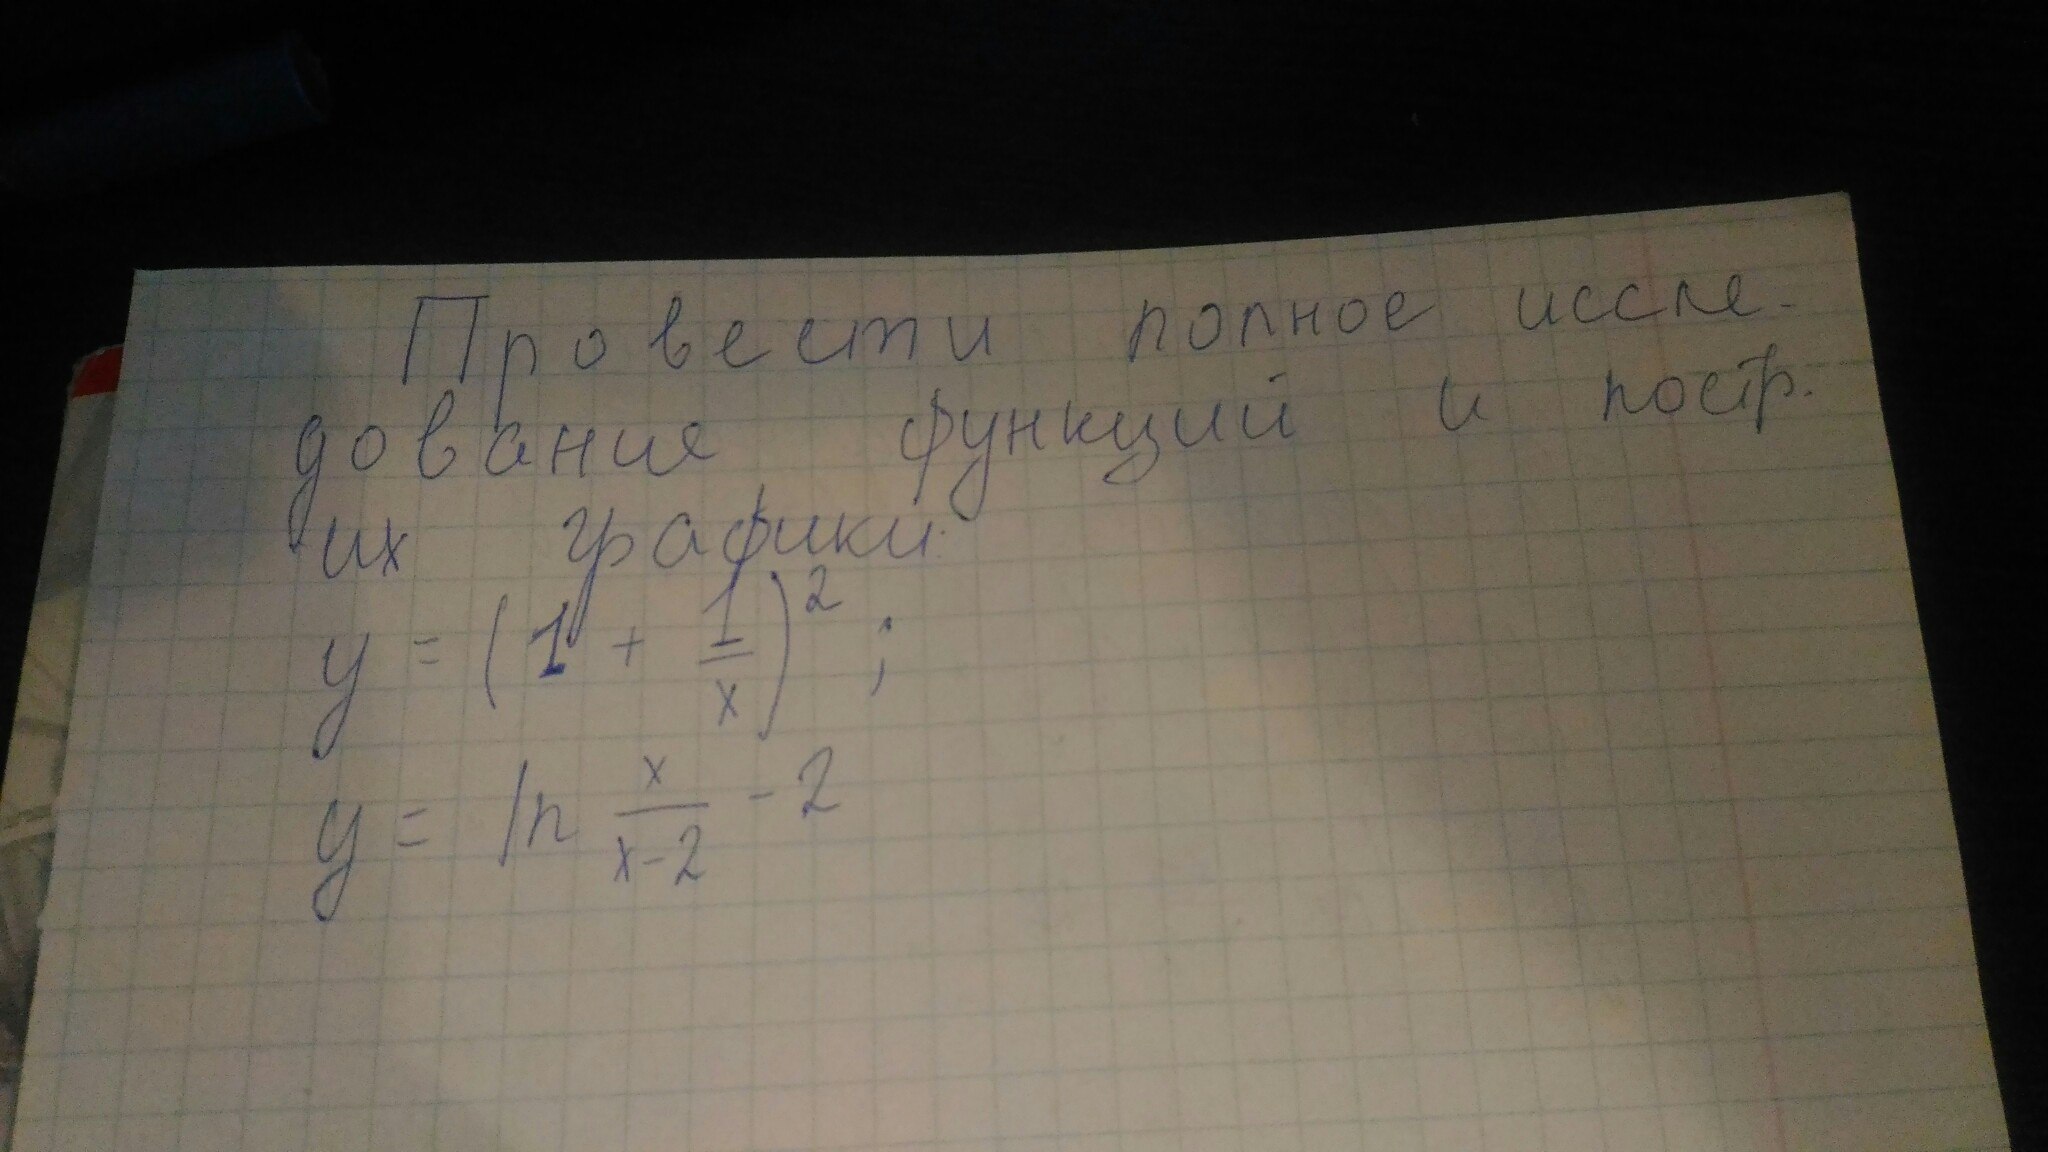 Провести полное иссле-
дование функций и постр.
их графики
y = (1 + 1/x)² ;
y = ln x/(x-2) - 2